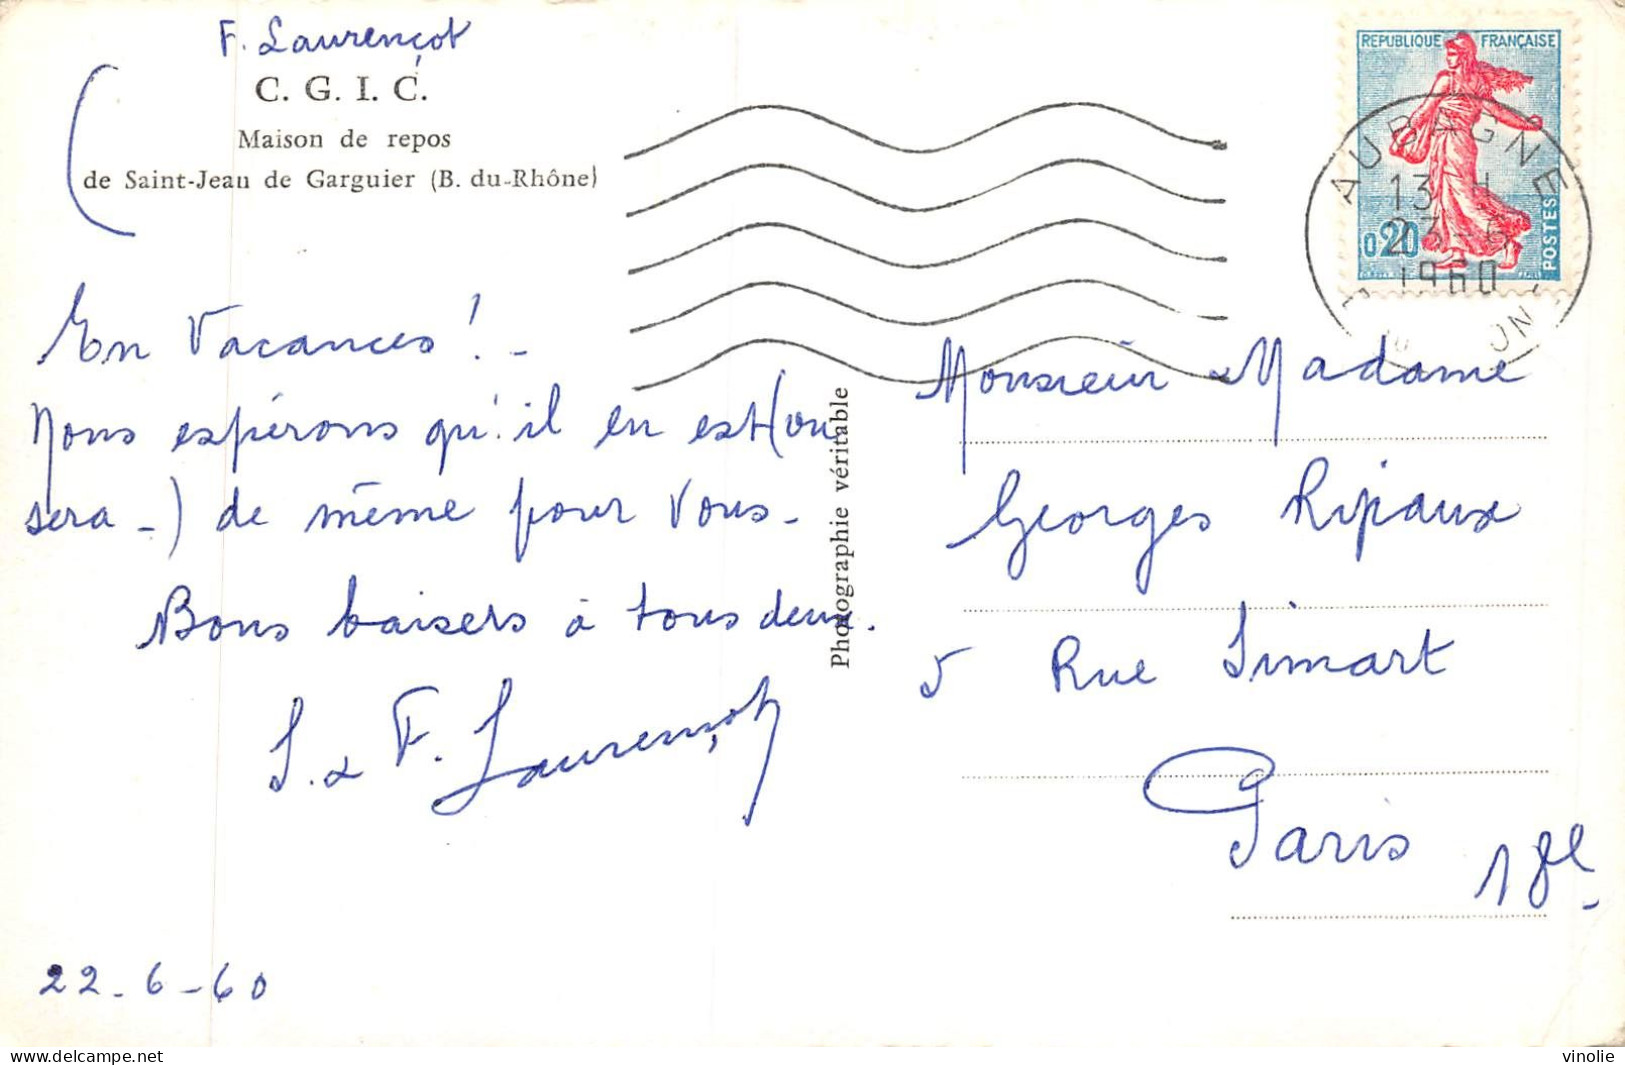 F. Laurençot
C. G. I. C.
Maison de repos
de Saint-Jean de Garguier (B. du-Rhône)
En Vacances ! -
Nous espérons qu'il en est (ou
sera -) de même pour Vous -
Bons baisers à tous deux.
F. Laurençot
22 - 6 - 60
Photographie véritable
REPUBLIQUE FRANÇAISE
0,20
POSTES
AUBAGNE
13 H
23 - 6
1960
Monsieur Madame
Georges Ripaux
5 Rue Simart
Paris 18e -
delcampe.net
vinolie